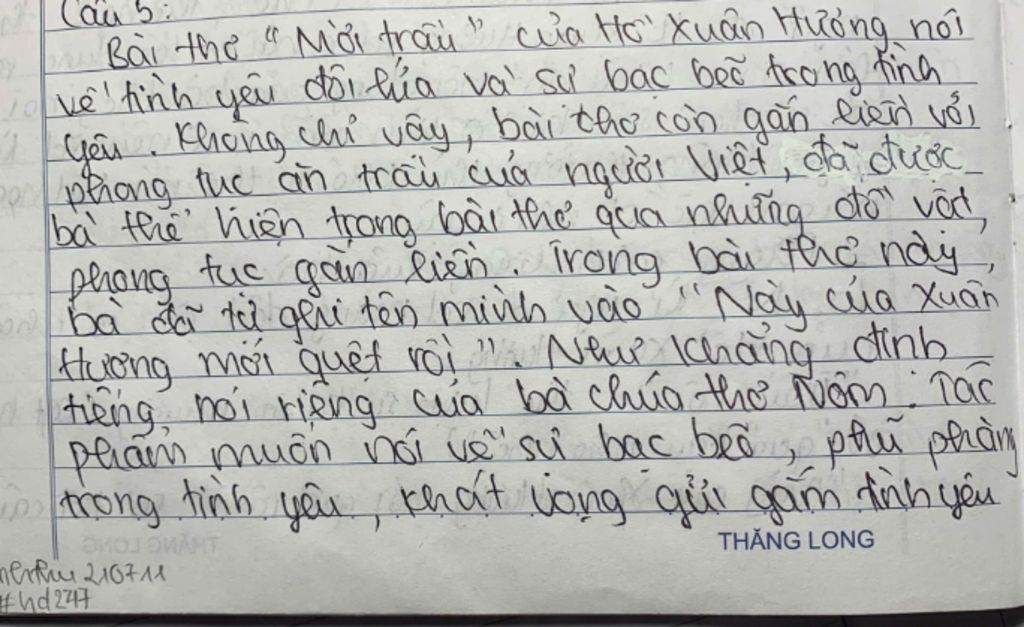 Câu 5:
Bài thơ "Mời trầu" của Hồ Xuân Hương nói
về tình yêu đôi lứa và sự bạc bẽo trong tình
yêu. Không chỉ vậy, bài thơ còn gắn liền với
phong tục ăn trầu của người Việt, đã được
bà thể hiện trong bài thơ qua những đồ vật,
phong tục gắn liền. Trong bài thơ này,
bà đã tự ghi tên mình vào "Này của Xuân
Hương mới quệt rồi". Như khẳng định
tiếng nói riêng của bà chúa thơ Nôm. Tác
phẩm muốn nói về sự bạc bẽo, phũ phàng
trong tình yêu, khát vọng gửi gắm tình yêu
THĂNG LONG
210711
#hd247